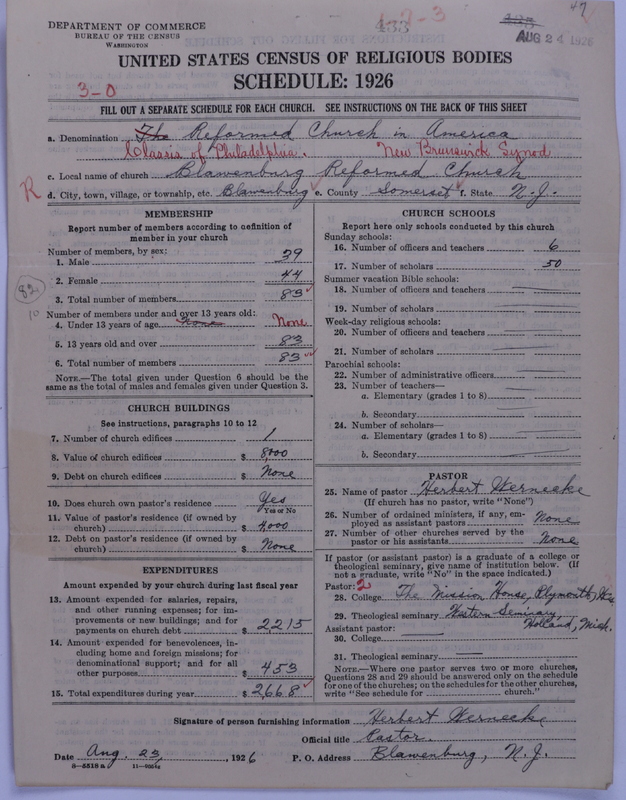 47
433
1-2-3
AUG 24 1926
DEPARTMENT OF COMMERCE
BUREAU OF THE CENSUS
WASHINGTON
UNITED STATES CENSUS OF RELIGIOUS BODIES
SCHEDULE: 1926
3-0
FILL OUT A SEPARATE SCHEDULE FOR EACH CHURCH. SEE INSTRUCTIONS ON THE BACK OF THIS SHEET
a. Denomination The Reformed Church in America
Classis of Philadelphia. New Brunswick Synod
c. Local name of church Blawenburg Reformed Church
R
d. City, town, village, or township, etc. Blawenburg e. County Somerset f. State N.J.
MEMBERSHIP
Report number of members according to definition of
member in your church
Number of members, by sex:
1. Male 39
2. Female 44
3. Total number of members 83
82
10
Number of members under and over 13 years old:
4. Under 13 years of age None None
5. 13 years old and over 83
6. Total number of members 83
NOTE.—The total given under Question 6 should be the
same as the total of males and females given under Question 3.
CHURCH BUILDINGS
See instructions, paragraphs 10 to 12
7. Number of church edifices 1
8. Value of church edifices $ 8,000
9. Debt on church edifices $ None
10. Does church own pastor's residence Yes
Yes or No
11. Value of pastor's residence (if owned by
church) $ 4,000
12. Debt on pastor's residence (if owned by
church) $ None
EXPENDITURES
Amount expended by your church during last fiscal year
13. Amount expended for salaries, repairs,
and other running expenses; for im-
provements or new buildings; and for
payments on church debt $ 2215
14. Amount expended for benevolences, in-
cluding home and foreign missions; for
denominational support; and for all
other purposes $ 453
15. Total expenditures during year $ 2668
CHURCH SCHOOLS
Report here only schools conducted by this church
Sunday schools:
16. Number of officers and teachers 6
17. Number of scholars 50
Summer vacation Bible schools:
18. Number of officers and teachers
19. Number of scholars
Week-day religious schools:
20. Number of officers and teachers
21. Number of scholars
Parochial schools:
22. Number of administrative officers
23. Number of teachers—
a. Elementary (grades 1 to 8)
b. Secondary
24. Number of scholars—
a. Elementary (grades 1 to 8)
b. Secondary
PASTOR
25. Name of pastor Herbert Wernecke
(If church has no pastor, write "None")
26. Number of ordained ministers, if any, em-
ployed as assistant pastors None
27. Number of other churches served by the
pastor or his assistants None
If pastor (or assistant pastor) is a graduate of a college or
theological seminary, give name of institution below. (If
not a graduate, write "No" in the space indicated.)
Pastor: 2
28. College The Mission House, Plymouth, Wis
29. Theological seminary Western Seminary,
Holland, Mich.
Assistant pastor:
30. College
31. Theological seminary
NOTE.—Where one pastor serves two or more churches,
Questions 28 and 29 should be answered only on the schedule
for one of the churches; on the schedules for the other churches,
write "See schedule for church."
Signature of person furnishing information Herbert Wernecke
Official title Pastor.
Date Aug. 23, 1926 P. O. Address Blawenburg, N.J.